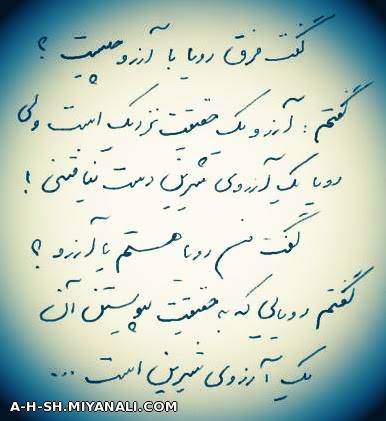 گفت فرق رویا با آرزو چیست ؟
گفتم : آرزو یک حقیقت نزدیک است ولی
رویا یک آرزوی شیرین دست نیافتنی !
گفت من رویا هستم یا آرزو ؟
گفتم رویایی که به حقیقت پیوستن آن
یک آرزوی شیرین است ...
A-H-SH.MIYANALI.COM